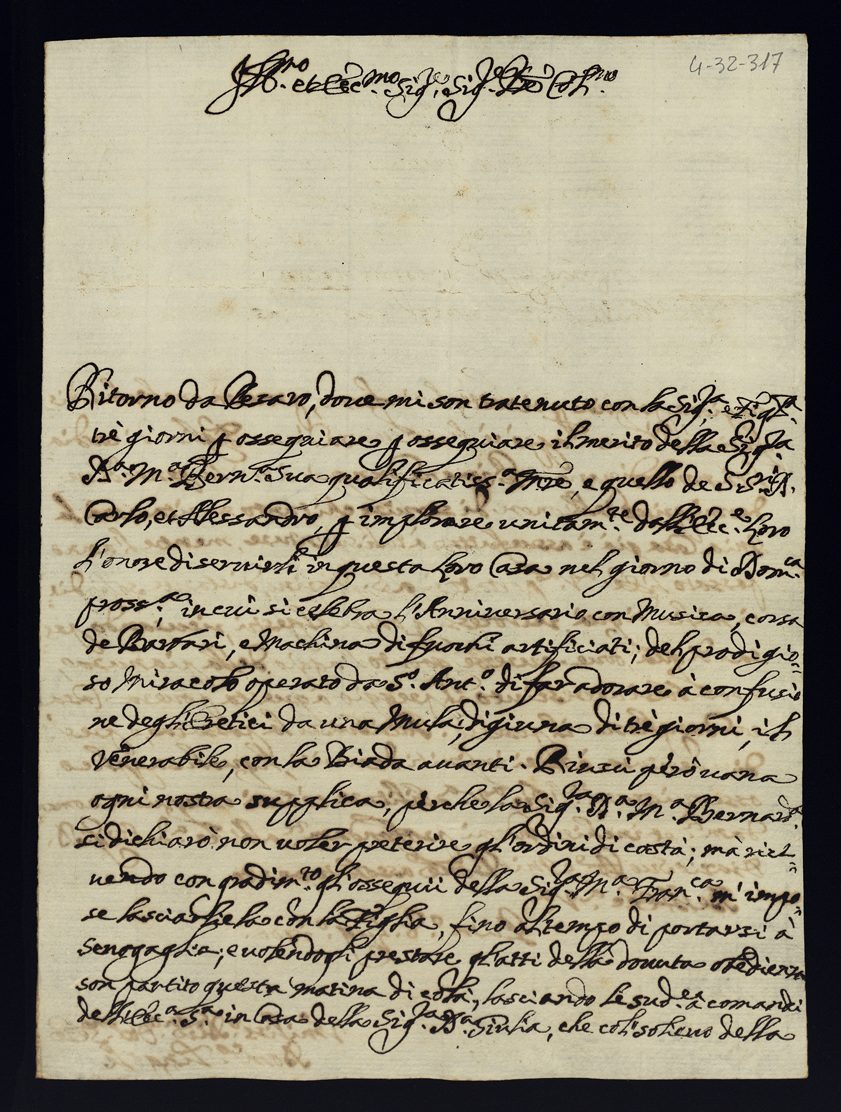 4-32-317
Ill.mo et Ecc.mo Sig.re, Sig.re Pñe Col.mo
Ritorno da Pesaro, doue mi son tratenuto con la Sig.ra e Figl.a
trè giorni p ossequiare p ossequiare il merito della Sig.ra
D.a M.a Bern.a sua qualificatiss.a Mre, e quello de SS.ri D.
Carlo, et Alessandro, p implorare unitam.te dall'Ecc.e Loro
l'onore di seruirli in questa Loro Casa nel giorno di Dom.ca
pross.a, in cui si celebra l'Anniuersario con Musica, corsa
de Barbari, e Machina di fuochi artificiati; del prodigio=
so Miracolo operato da S.o Ant.o di far adorare à confusio
ne degl'Eretici da una Mula, digiuna di trè giorni, il
Venerabile, con la Biada auanti. Riuscì però uana
ogni nostra supplica, perche la Sig.ra D.a M.a Bernard.a
si dichiarò non uoler preterire gl'ordini di costà; mà rice=
uendo con gradim.to gl'ossequii della Sig.ra M.a Fran.ca m'impo=
se lasciarliela con la Figlia, fino al tempo di portarsi à
Senogaglia; e uolendogli prestare gl'atti della douuta obedienza
son partito questa matina di colà, lasciando le sud.e à comandi
dell'Ecc.a S.a in Casa della Sig.ra D.a Giulia, che col solieuo della